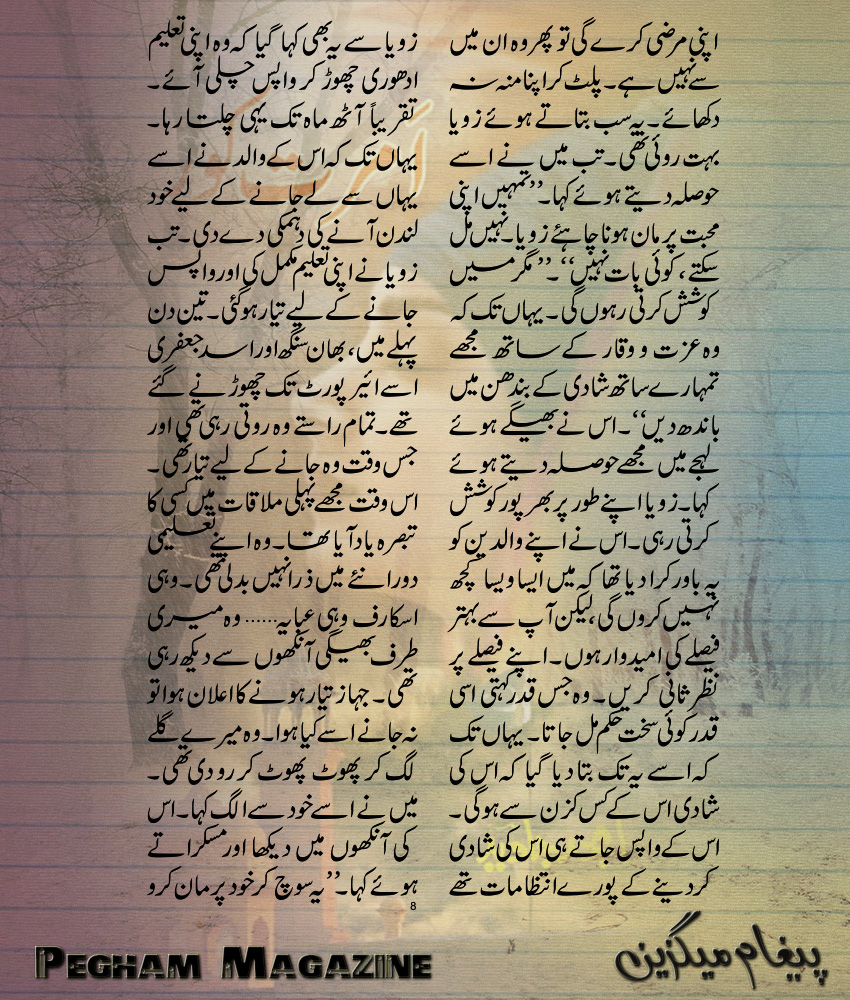 اپنی مرضی کرے گی تو پھر وہ ان میں
سے نہیں ہے۔ پلٹ کر اپنا منہ نہ
دکھائے۔ یہ سب بتاتے ہوئے زویا
بہت روئی تھی۔ تب میں نے اسے
حوصلہ دیتے ہوئے کہا۔’’تمہیں اپنی
محبت پر مان ہونا چاہئے زویا۔ نہیں مل
سکتے، کوئی بات نہیں‘‘۔’’ مگر میں
کوشش کرتی رہوں گی۔ یہاں تک کہ
وہ عزت و وقار کے ساتھ مجھے
تمہارے ساتھ شادی کے بندھن میں
باندھ دیں‘‘۔اس نے بھیگے ہوئے
لہجے میں مجھے حوصلہ دیتے ہوئے
کہا۔زویا اپنے طور پر بھر پور کوشش
کرتی رہی۔اس نے اپنے والدین کو
یہ باور کرا دیا تھا کہ میں ایسا ویسا کچھ
نہیں کروں گی،لیکن آپ سے بہتر
فیصلے کی امیدوار ہوں۔اپنے فیصلے پر
نظر ثانی کریں۔ وہ جس قدر کہتی اسی
قدر کوئی سخت حکم مل جاتا۔ یہاں تک
کہ اسے یہ تک بتا دیا گیا کہ اس کی
شادی اس کے کس کزن سے ہوگی۔
اس کے واپس جاتے ہی اس کی شادی
کر دینے کے پورے انتظامات تھے
زویا سے یہ بھی کہا گیا کہ وہ اپنی تعلیم
ادھوری چھوڑ کر واپس چلی آئے۔
تقریباً آٹھ ماہ تک یہی چلتا رہا۔
یہاں تک کہ اس کے والد نے اسے
یہاں سے لے جانے کے لیے خود
لندن آنے کی دہمکی دے دی۔ تب
زویا نے اپنی تعلیم مکمل کی اور واپس
جانے کے لیے تیار ہوگئی۔ تین دن
پہلے میں، بھان سنگھ اور اسد جعفری
اسے ائیر پورٹ تک چھوڑنے گئے
تھے۔تمام راستے وہ روتی رہی تھی اور
جس وقت وہ جانے کے لیے تیار تھی۔
اس وقت مجھے پہلی ملاقات میں کسی کا
تبصرہ یاد آیا تھا۔وہ اپنے تعلیمی
دورانئے میں ذرا نہیں بدلی تھی۔وہی
اسکارف وہی عبایہ...... وہ میری
طرف بھیگی آنکھوں سے دیکھ رہی
تھی۔ جہاز تیار ہونے کا اعلان ہوا تو
نہ جانے اسے کیا ہوا۔وہ میرے گلے
لگ کر پھوٹ پھوٹ کر رو دی تھی۔
میں نے اسے خود سے الگ کہا۔اس
کی آنکھوں میں دیکھا اور مسکراتے
ہوئے کہا۔’’یہ سوچ کر خود پر مان کرو
8
Pegham Magazine
پیغام میگزین